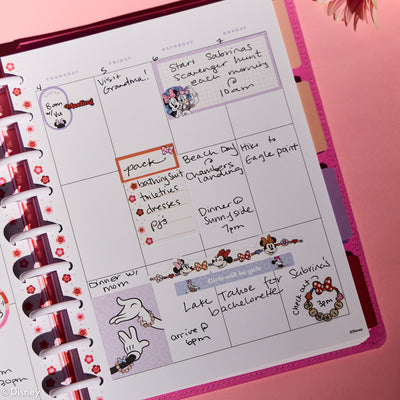 THURSDAY
FRIDAY
SATURDAY
SUNDAY
4
5
6
7
8am
w/ Viv
visit
Grandma!
Start Sabrinas
scavenger hunt
each morning
@
10am
pack
bathing suit
toiletries
dresses
pj's
Beach Day
@
Chambers
landing
Hike to
Eagle point
Dinner @
Sunnyside
7pm
Dinner w/
mom
Girls will be girls
Late
arrive @
6pm
Tahoe for
bachelorette
Sabrina's
Check out @
3pm
30pm
©Disney
©Disney